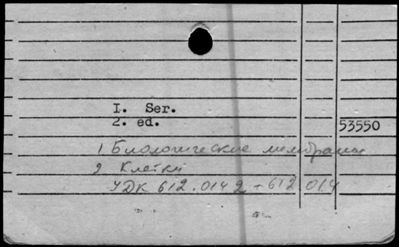 I. Ser.
2. ed.
53550
1 Биологические мембраны
2 Клетки
УДК 612.014 2 + 612.014